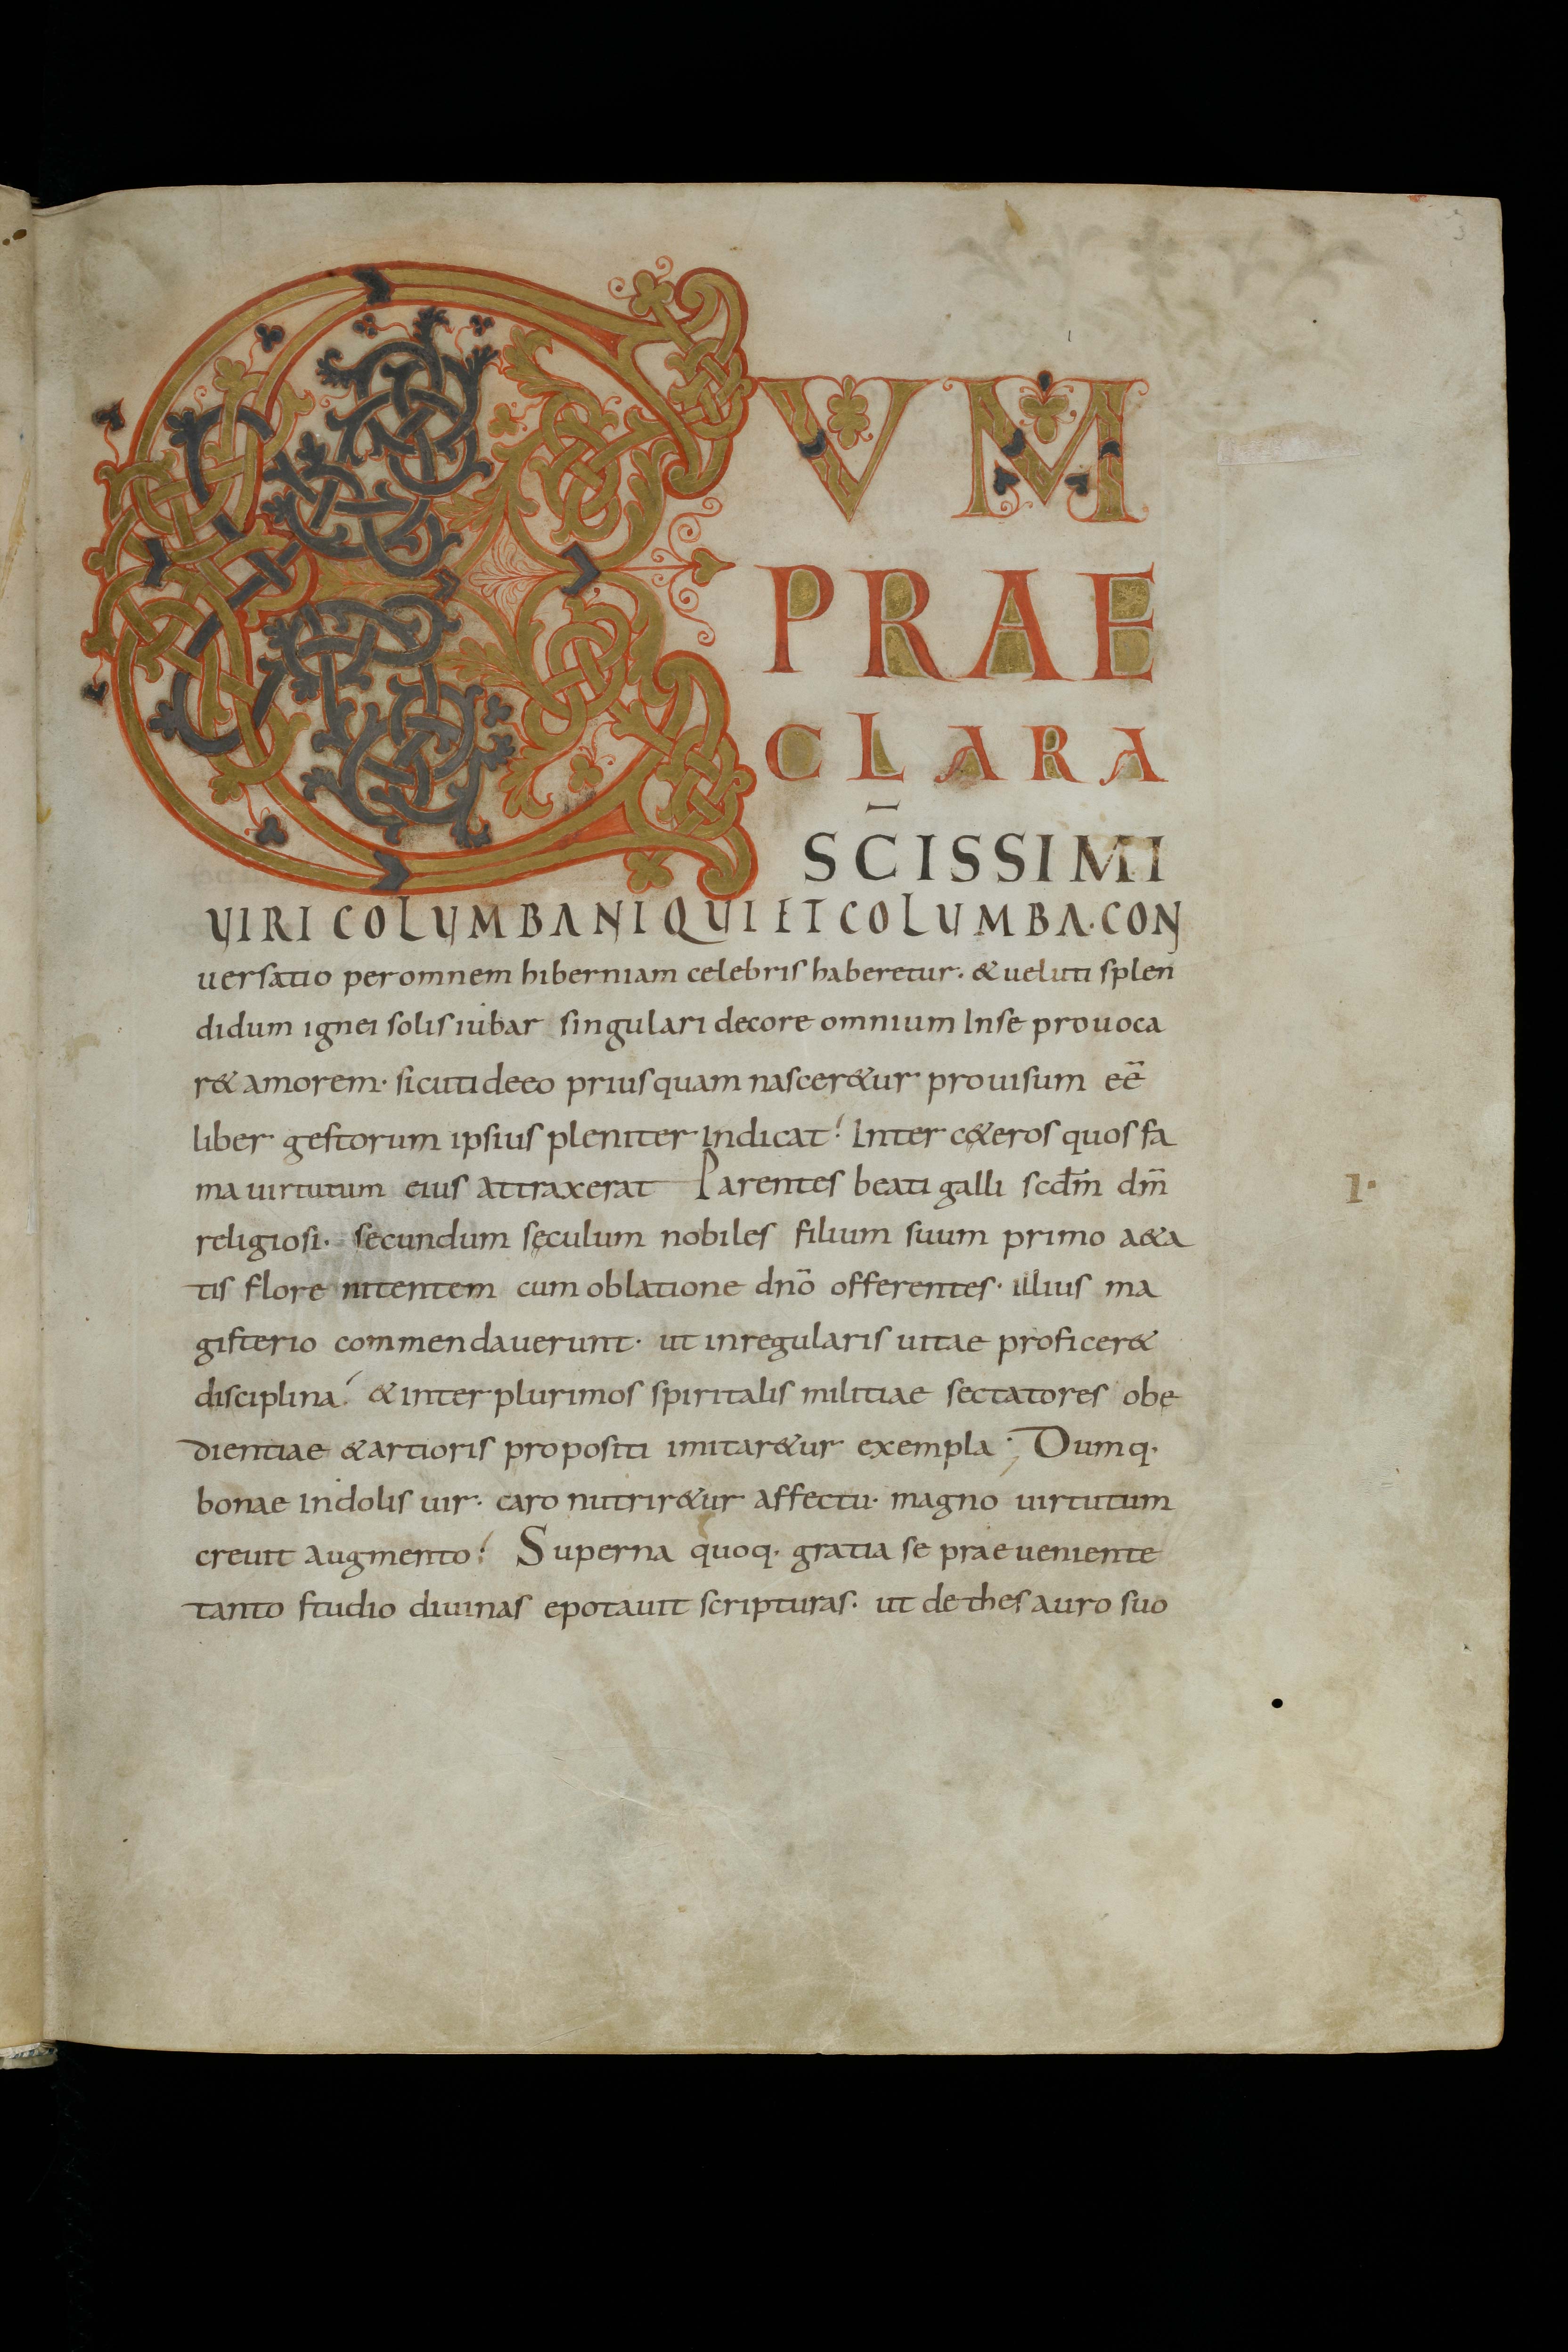 CUM
PRAE
CLARA
SC̄ISSIMI
UIRI COLUMBANI QUI ET COLUMBA· CON
uersatio per omnem hiberniam celebris haberetur· & ueluti splen
didum ignei solis iubar singulari decore omnium Inse prouoca
r& amorem· sicuti deeo priusquam nascer&ur prouisum eē
liber gestorum ipsius pleniter Indicat! Inter c&eros quos fa
ma uirtutum eius attraxerat Parentes beati galli scdm̄ dm̄
religiosi· secundum sęculum nobiles filium suum primo a&a
tis flore nitentem cum oblatione dnō offerentes· illius ma
gisterio commendauerunt· ut inregularis uitae proficer&
disciplina! & inter plurimos spiritalis militiae sectatores obę
dientiae & artioris propositi imitar&ur exempla; Dumq·
bonae Indolis uir· caro nutrir&ur affectu· magno uirtutum
creuit augmento! Superna quoq· gratia se praeueniente
tanto studio diuinas epotauit scripturas· ut de thesauro suo
1·
3